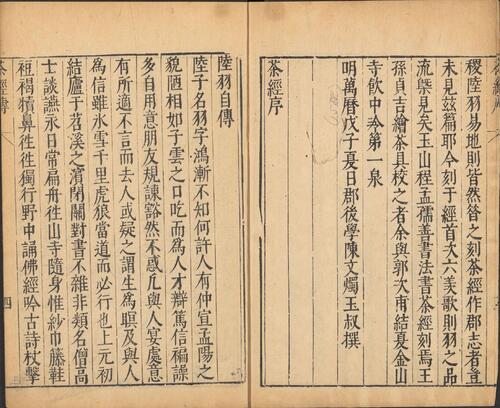 稷陸羽易地則皆然昔之刻茶經作郡志者豈
未見玆篇耶今刻于經首次六羨歌則羽之品
流槩見矣玉山程孟孺善書法書茶經刻焉王
孫貞吉繪茶具校之者余與郭次甫結夏金山
寺飲中泠第一泉
明萬曆戊子夏日郡後學陳文燭玉叔撰
茶經序
陸羽自傳
陸子名羽字鴻漸不知何許人有仲宣孟陽之
貌陋相如子雲之口吃而為人才辯篤信褊譟
多自用意朋友規諫豁然不惑凡與人宴處意
有所適不言而去人或疑之謂生為瞋及與人
為信雖氷雪千里虎狼當道而必行也上元初
結廬于苕溪之濱閉關對書不雜非類名僧高
士談讌永日常扁舟徃山寺隨身惟紗巾藤鞋
裋褐犢鼻徃徃獨行野中誦佛經吟古詩杖擊
四